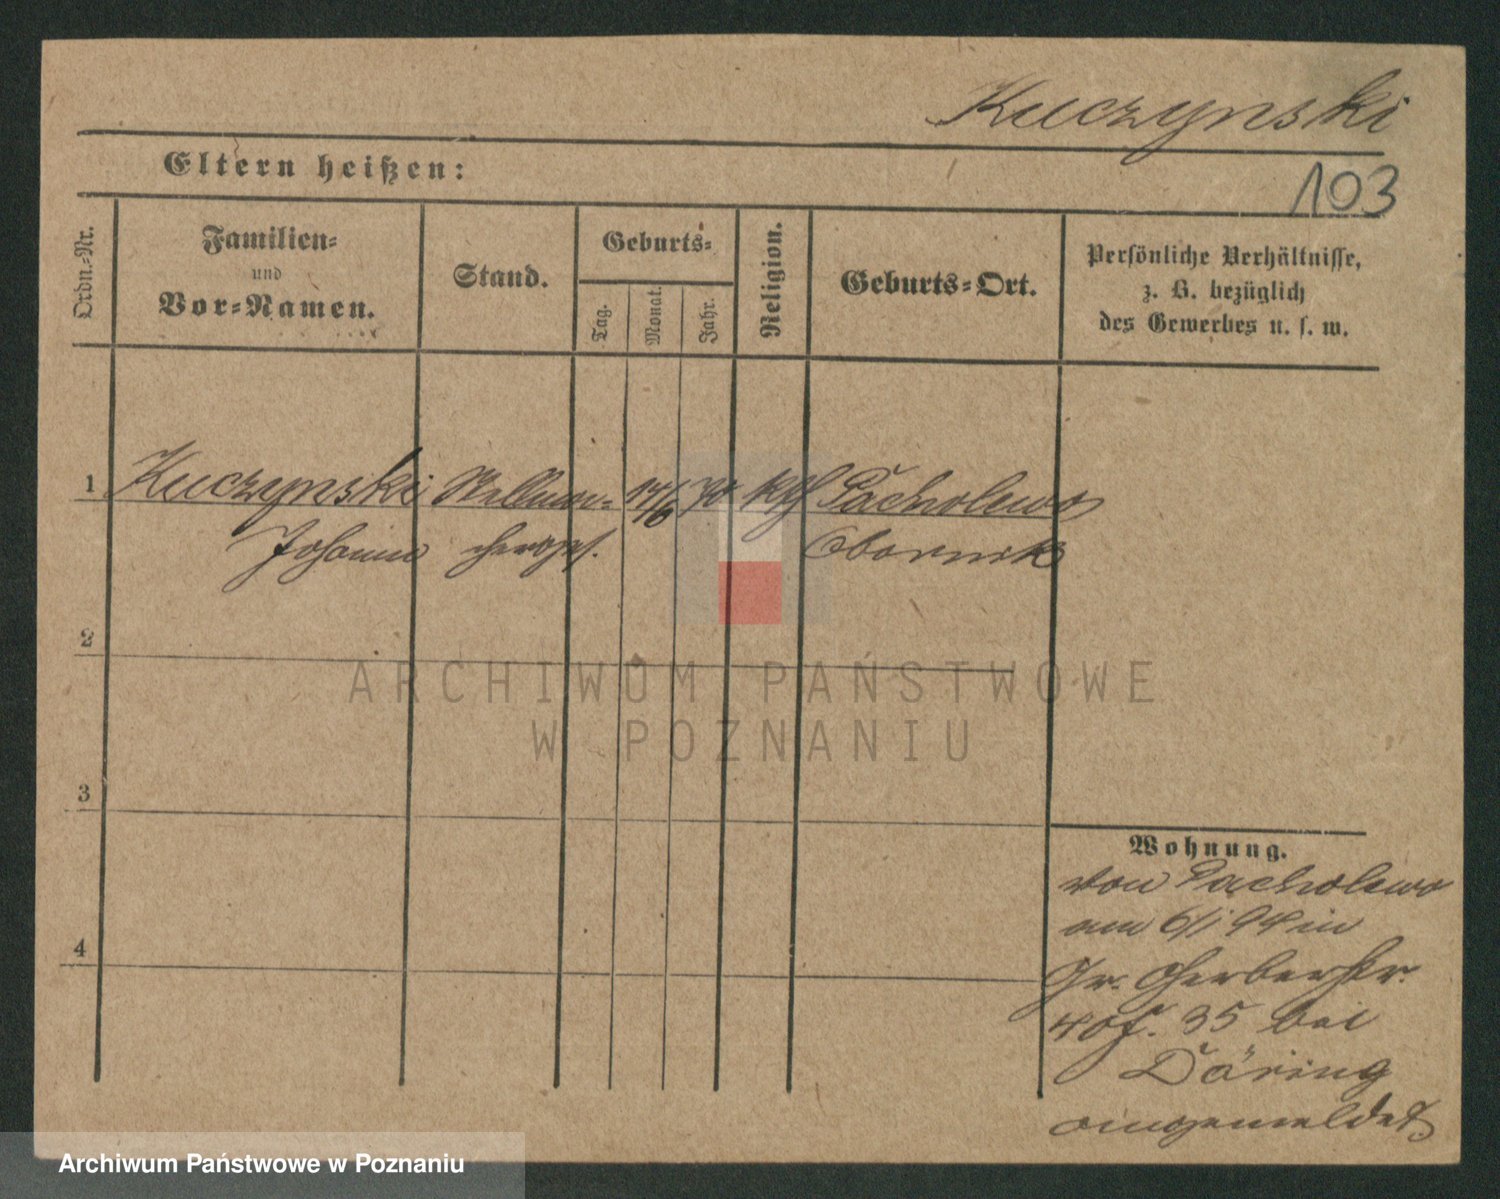 Kuczynski
Eltern heißen:
103
Ordn.-Nr.
Familien-
und
Vor-Namen.
Stand.
Geburts-
Tag.
Monat.
Jahr.
Religion.
Geburts-Ort.
Persönliche Verhältnisse,
z. B. bezüglich
des Gewerbes u. s. w.
1 Kuczynski Stellma- 14/6 70 kth Pacholewo
Johann chergs. Obornik
2
ARCHIWUM PAŃSTWOWE
W POZNANIU
3
Wohnung.
von Pacholewo
am 6/1 94 in
4
Gr. Gerberstr.
Hof. 35 bei
Döring
angemeldet
Archiwum Państwowe w Poznaniu